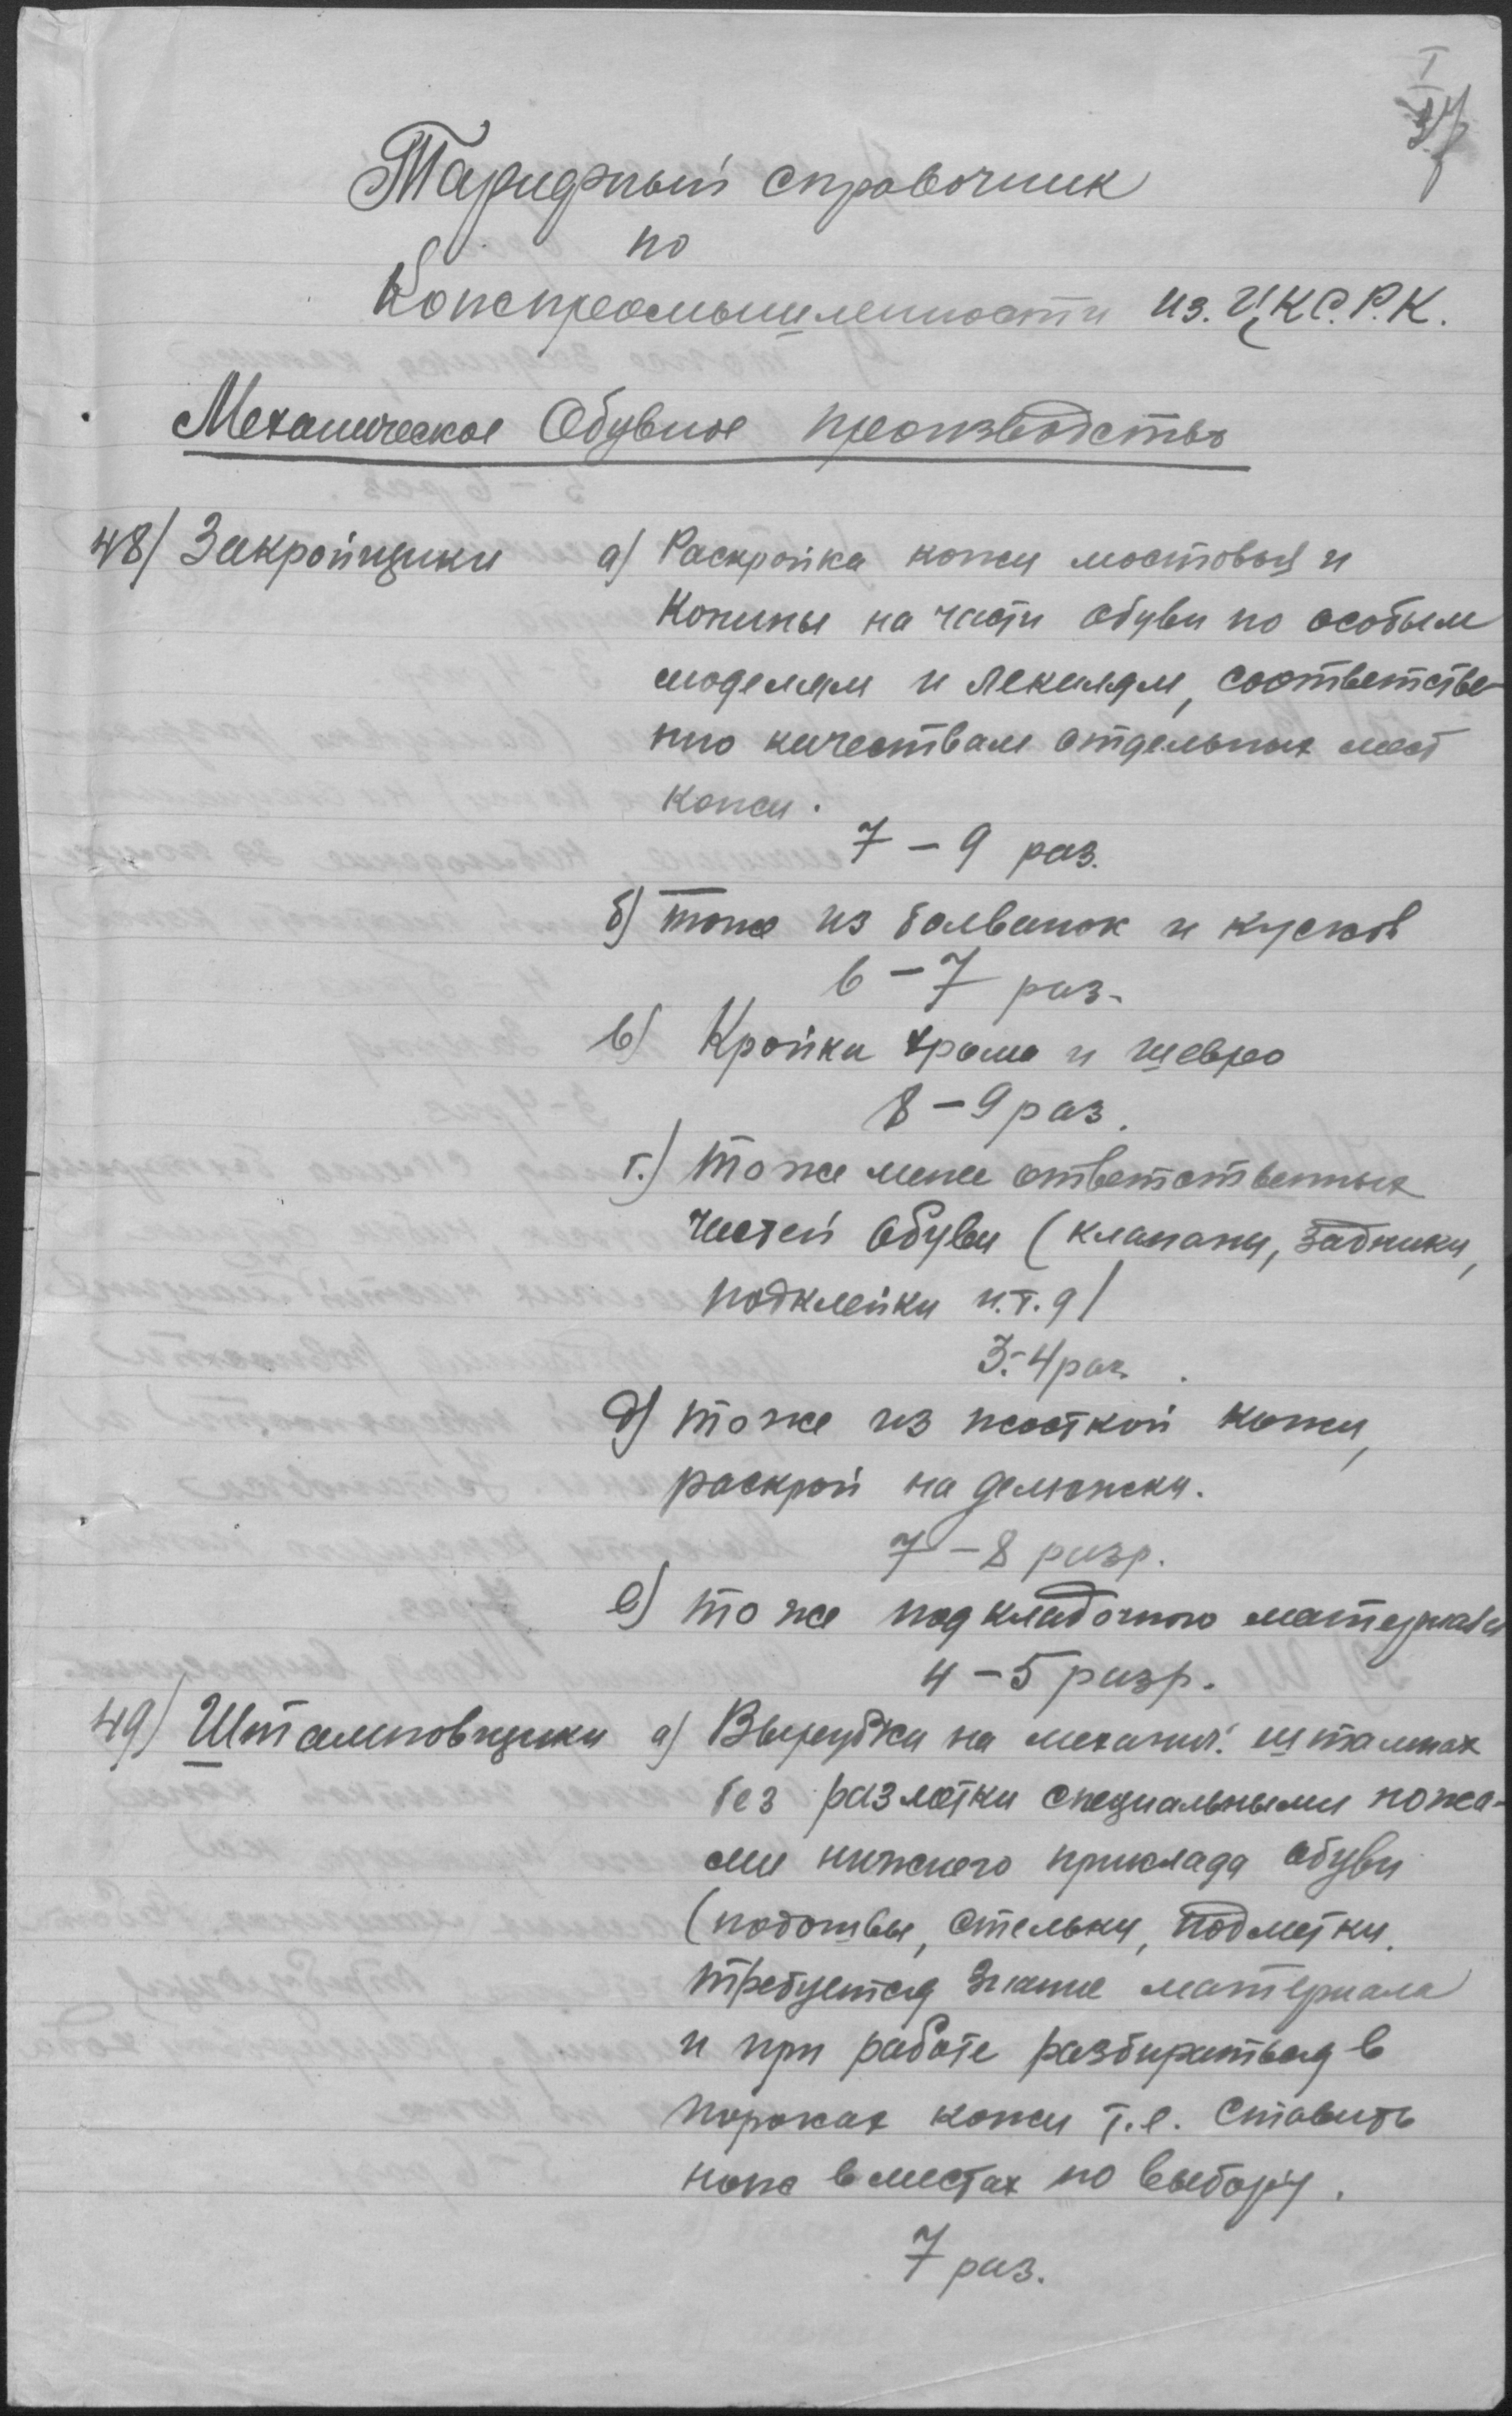 I
37
Тарифный справочник
по
Кожпромышленности из. ЦКС.Р.К.
Механическое Обувное производство
48) Закройщики а) Раскройка кожи мостовья и
Конины на части обуви по особым
моделям и лекалам, соответстве-
нно качествам отдельных мест
кожи.
7 – 9 раз.
б) тоже из болванок и кусков
6 – 7 раз.
в) Кройка хрома и шевро
8 – 9 раз.
г.) тоже мене ответственных
частей обуви (клапаны, задники,
подклейки и.т.д)
3-4 раз.
д) тоже из жосткой кожи,
раскрой на делюжки.
7 – 8 разр.
е) тоже подкладочного материала
4 – 5 разр.
49) Штамповщики а) Вырубка на механич. штампах
без разметки специальными ножа-
ми нижнего приклада обуви
(подошвы, стельки, подметки.
требуется знание материала
и при работе разбираться в
пороках кожи т.е. ставить
нож в местах по выбору.
7 раз.